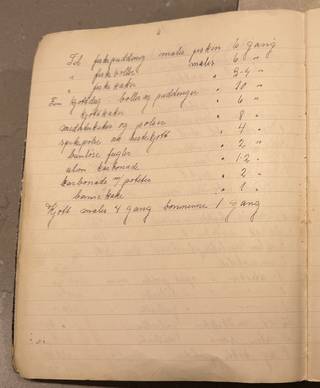 Til fiskepudding males fisken 6 gang
" fiskeboller males 6 "
" fiskekaker " 3-4 "
En kjøttdeig boller og puddinger " 10 "
kjøttkaker " 6 "
medisterkaker og pølser " 8 "
spekepølse av hestekjøtt " 4 "
benløse fugler " 2 "
uten karbonade " 1-2 "
karbonade m/ poteter " 2 "
" 1 "
Kjøtt males 4 gang 1 gang